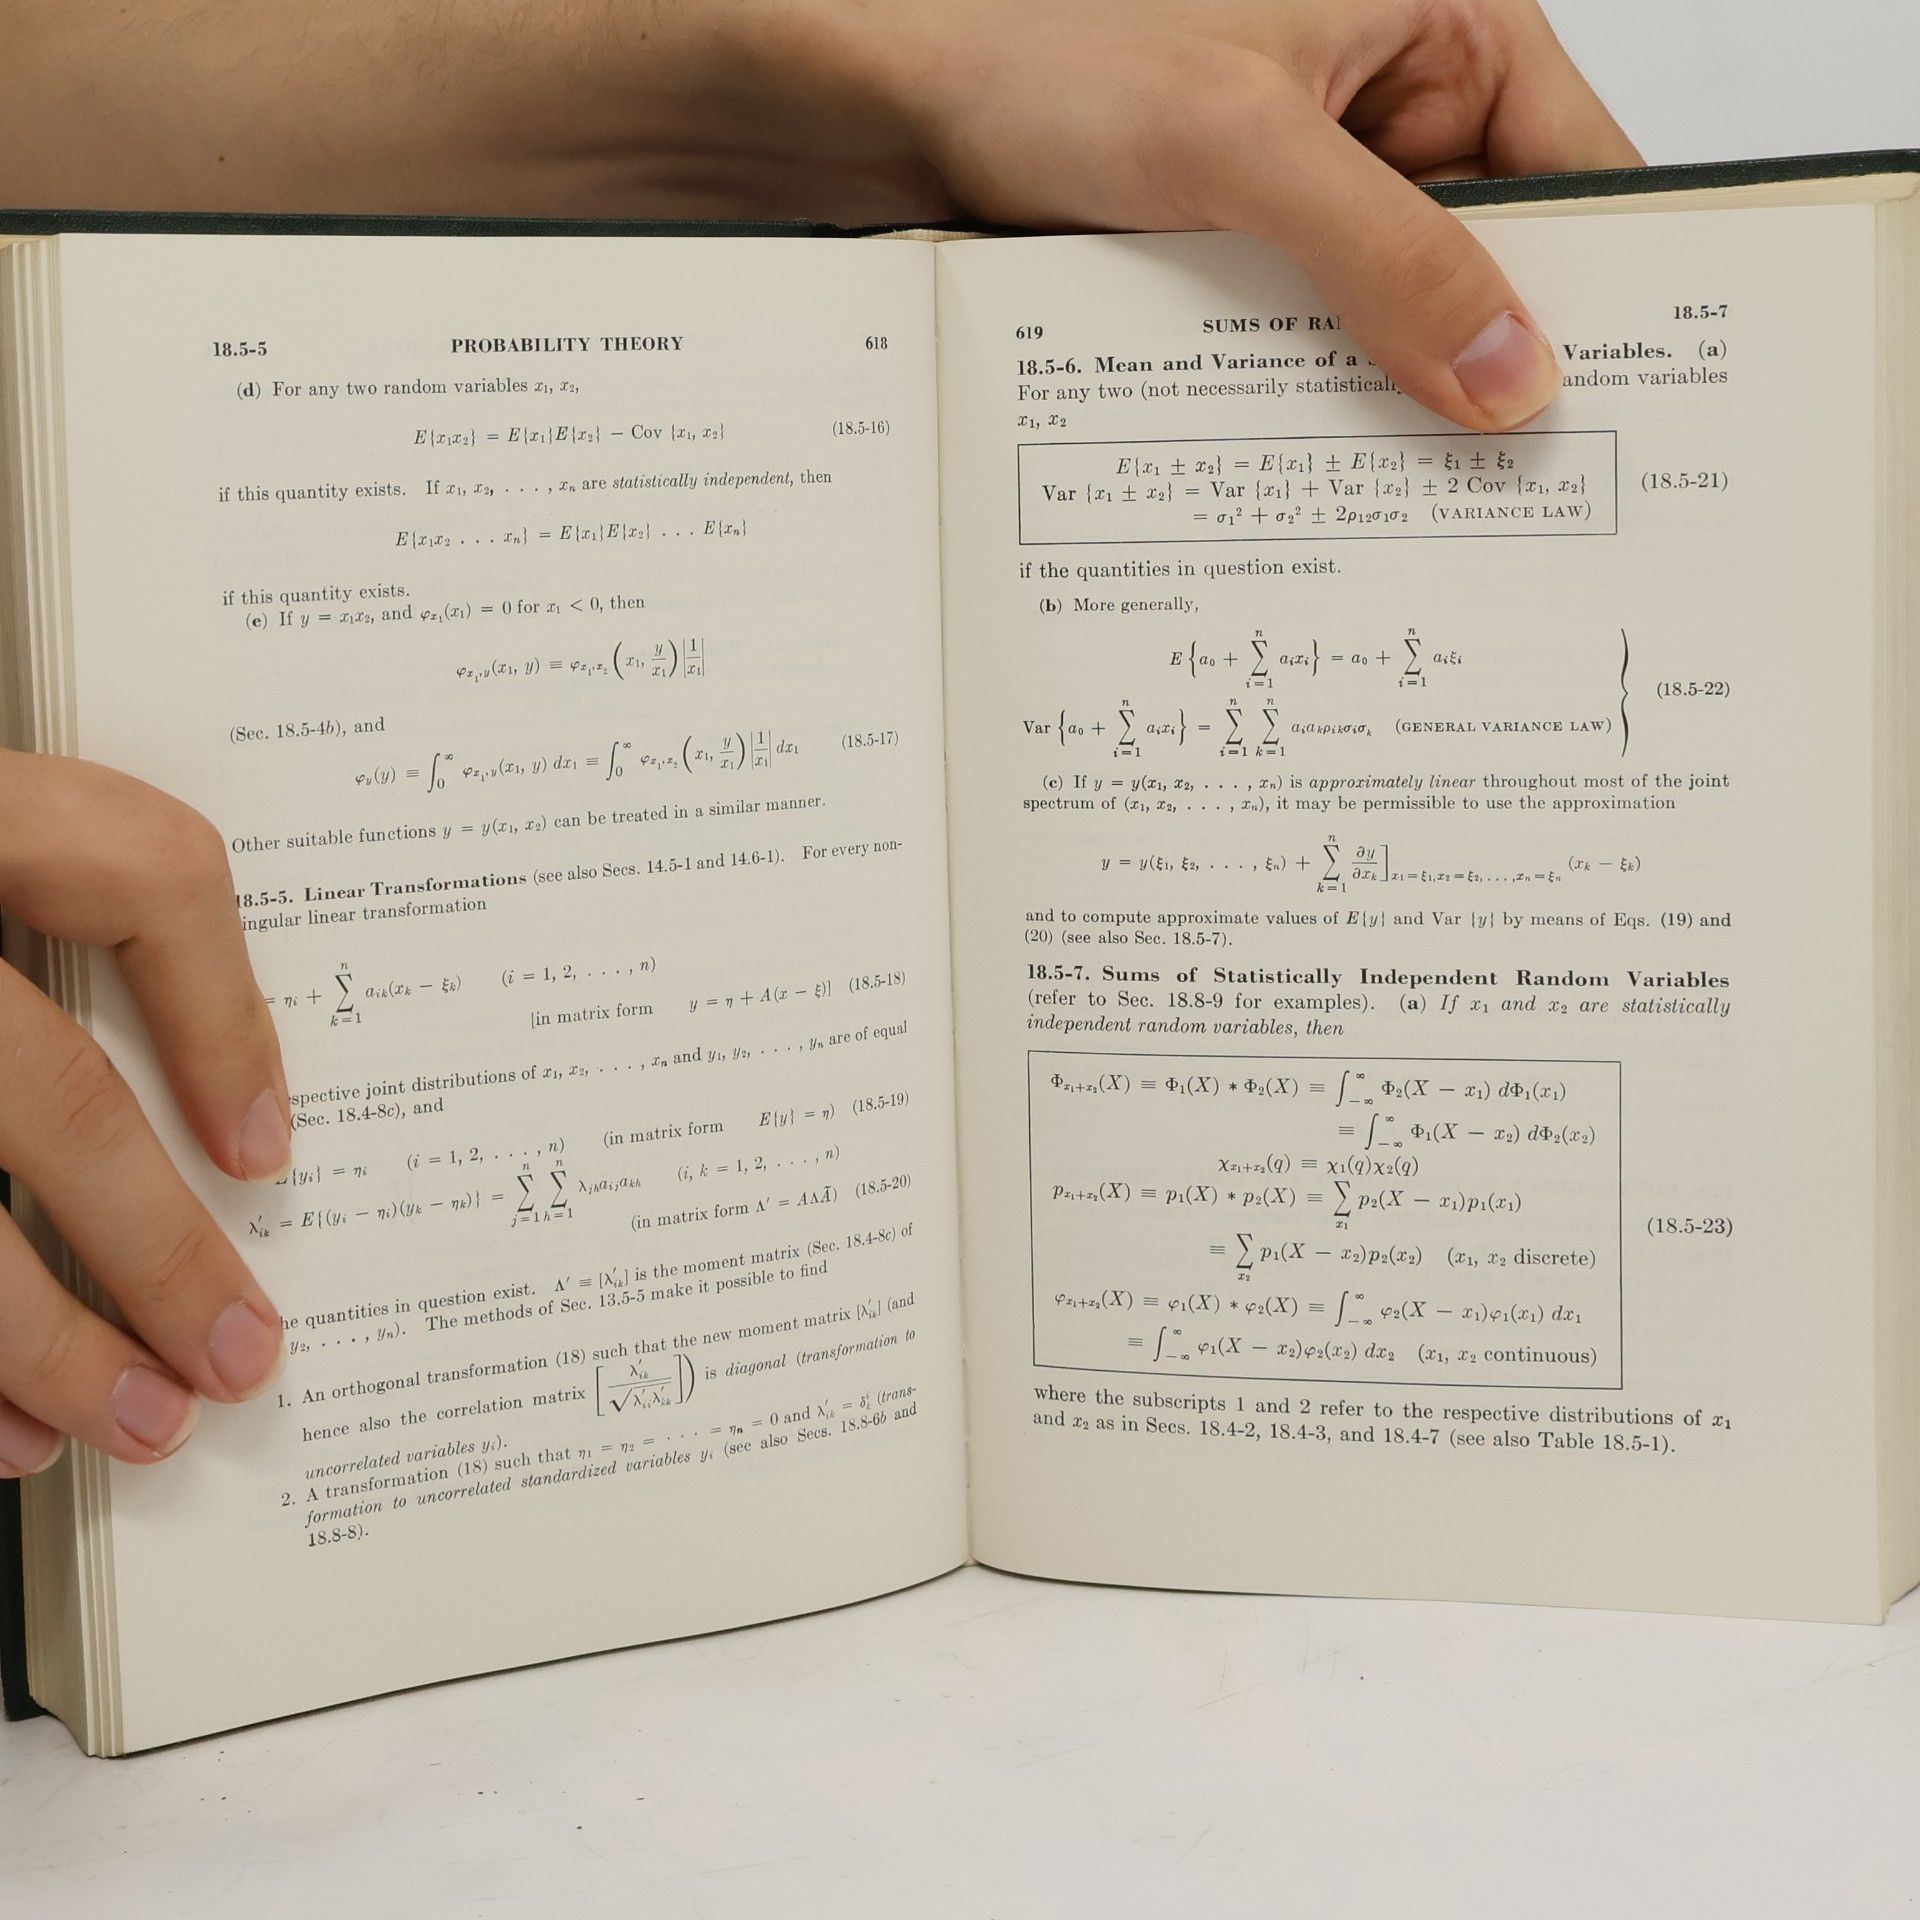 18.5-5 PROBABILITY THEORY 618
(d) For any two random variables x₁, x₂,
E{x₁x₂} = E{x₁}E{x₂} − Cov {x₁, x₂} (18.5-16)
if this quantity exists. If x₁, x₂, . . . , xₙ are statistically independent, then
E{x₁x₂ . . . xₙ} = E{x₁}E{x₂} . . . E{xₙ}
if this quantity exists.
(e) If y = x₁x₂, and φ_{x₁}(x₁) = 0 for x₁ < 0, then
φ_{x₁,y}(x₁, y) ≡ φ_{x₁,x₂}(x₁, y/x₁)|1/x₁|
(Sec. 18.5-4b), and
φ_y(y) ≡ ∫₀^∞ φ_{x₁,y}(x₁, y) dx₁ ≡ ∫₀^∞ φ_{x₁,x₂}(x₁, y/x₁)|1/x₁| dx₁ (18.5-17)
Other suitable functions y = y(x₁, x₂) can be treated in a similar manner.
18.5-5. Linear Transformations (see also Secs. 14.5-1 and 14.6-1). For every non-
ingular linear transformation
= ηᵢ + ∑_{k=1}^{n} a_{ik}(x_k − ξ_k) (i = 1, 2, . . . , n)
[in matrix form y = η + A(x − ξ)] (18.5-18)
spective joint distributions of x₁, x₂, . . . , xₙ and y₁, y₂, . . . , yₙ are of equal
(Sec. 18.4-8c), and
{yᵢ} = ηᵢ (i = 1, 2, . . . , n) (in matrix form E{y} = η) (18.5-19)
λ′_{ik} = E{(yᵢ − ηᵢ)(y_k − η_k)} = ∑_{j=1}^{n} ∑_{h=1}^{n} λ_{jh}a_{ij}a_{kh} (i, k = 1, 2, . . . , n)
(in matrix form Λ′ = AΛÃ) (18.5-20)
he quantities in question exist. Λ′ ≡ [λ′_{ik}] is the moment matrix (Sec. 18.4-8c) of
y₂, . . . , yₙ). The methods of Sec. 13.5-5 make it possible to find
1. An orthogonal transformation (18) such that the new moment matrix [λ′_{ik}] (and
hence also the correlation matrix [λ′_{ik}/√(λ′_{ii}λ′_{kk})]) is diagonal (transformation to
uncorrelated variables yᵢ).
2. A transformation (18) such that η₁ = η₂ = · · · = ηₙ = 0 and λ′_{ik} = δ^i_k (trans-
formation to uncorrelated standardized variables yᵢ (see also Secs. 18.8-6b and
18.8-8).
619 SUMS OF RA 18.5-7
18.5-6. Mean and Variance of a Variables. (a)
For any two (not necessarily statistically andom variables
x₁, x₂
E{x₁ ± x₂} = E{x₁} ± E{x₂} = ξ₁ ± ξ₂
Var {x₁ ± x₂} = Var {x₁} + Var {x₂} ± 2 Cov {x₁, x₂} (18.5-21)
= σ₁² + σ₂² ± 2ρ₁₂σ₁σ₂ (VARIANCE LAW)
if the quantities in question exist.
(b) More generally,
E{a₀ + ∑_{i=1}^{n} aᵢxᵢ} = a₀ + ∑_{i=1}^{n} aᵢξᵢ
(18.5-22)
Var {a₀ + ∑_{i=1}^{n} aᵢxᵢ} = ∑_{i=1}^{n} ∑_{k=1}^{n} aᵢa_kρ_{ik}σᵢσ_k (GENERAL VARIANCE LAW)
(c) If y = y(x₁, x₂, . . . , xₙ) is approximately linear throughout most of the joint
spectrum of (x₁, x₂, . . . , xₙ), it may be permissible to use the approximation
y = y(ξ₁, ξ₂, . . . , ξₙ) + ∑_{k=1}^{n} ∂y/∂x_k]_{x₁=ξ₁,x₂=ξ₂,...,xₙ=ξₙ} (x_k − ξ_k)
and to compute approximate values of E{y} and Var {y} by means of Eqs. (19) and
(20) (see also Sec. 18.5-7).
18.5-7. Sums of Statistically Independent Random Variables
(refer to Sec. 18.8-9 for examples). (a) If x₁ and x₂ are statistically
independent random variables, then
Φ_{x₁+x₂}(X) ≡ Φ₁(X) * Φ₂(X) ≡ ∫_{−∞}^{∞} Φ₂(X − x₁) dΦ₁(x₁)
≡ ∫_{−∞}^{∞} Φ₁(X − x₂) dΦ₂(x₂)
χ_{x₁+x₂}(q) ≡ χ₁(q)χ₂(q)
p_{x₁+x₂}(X) ≡ p₁(X) * p₂(X) ≡ ∑_{x₁} p₂(X − x₁)p₁(x₁)
(18.5-23)
≡ ∑_{x₂} p₁(X − x₂)p₂(x₂) (x₁, x₂ discrete)
φ_{x₁+x₂}(X) ≡ φ₁(X) * φ₂(X) ≡ ∫_{−∞}^{∞} φ₂(X − x₁)φ₁(x₁) dx₁
≡ ∫_{−∞}^{∞} φ₁(X − x₂)φ₂(x₂) dx₂ (x₁, x₂ continuous)
where the subscripts 1 and 2 refer to the respective distributions of x₁
and x₂ as in Secs. 18.4-2, 18.4-3, and 18.4-7 (see also Table 18.5-1).